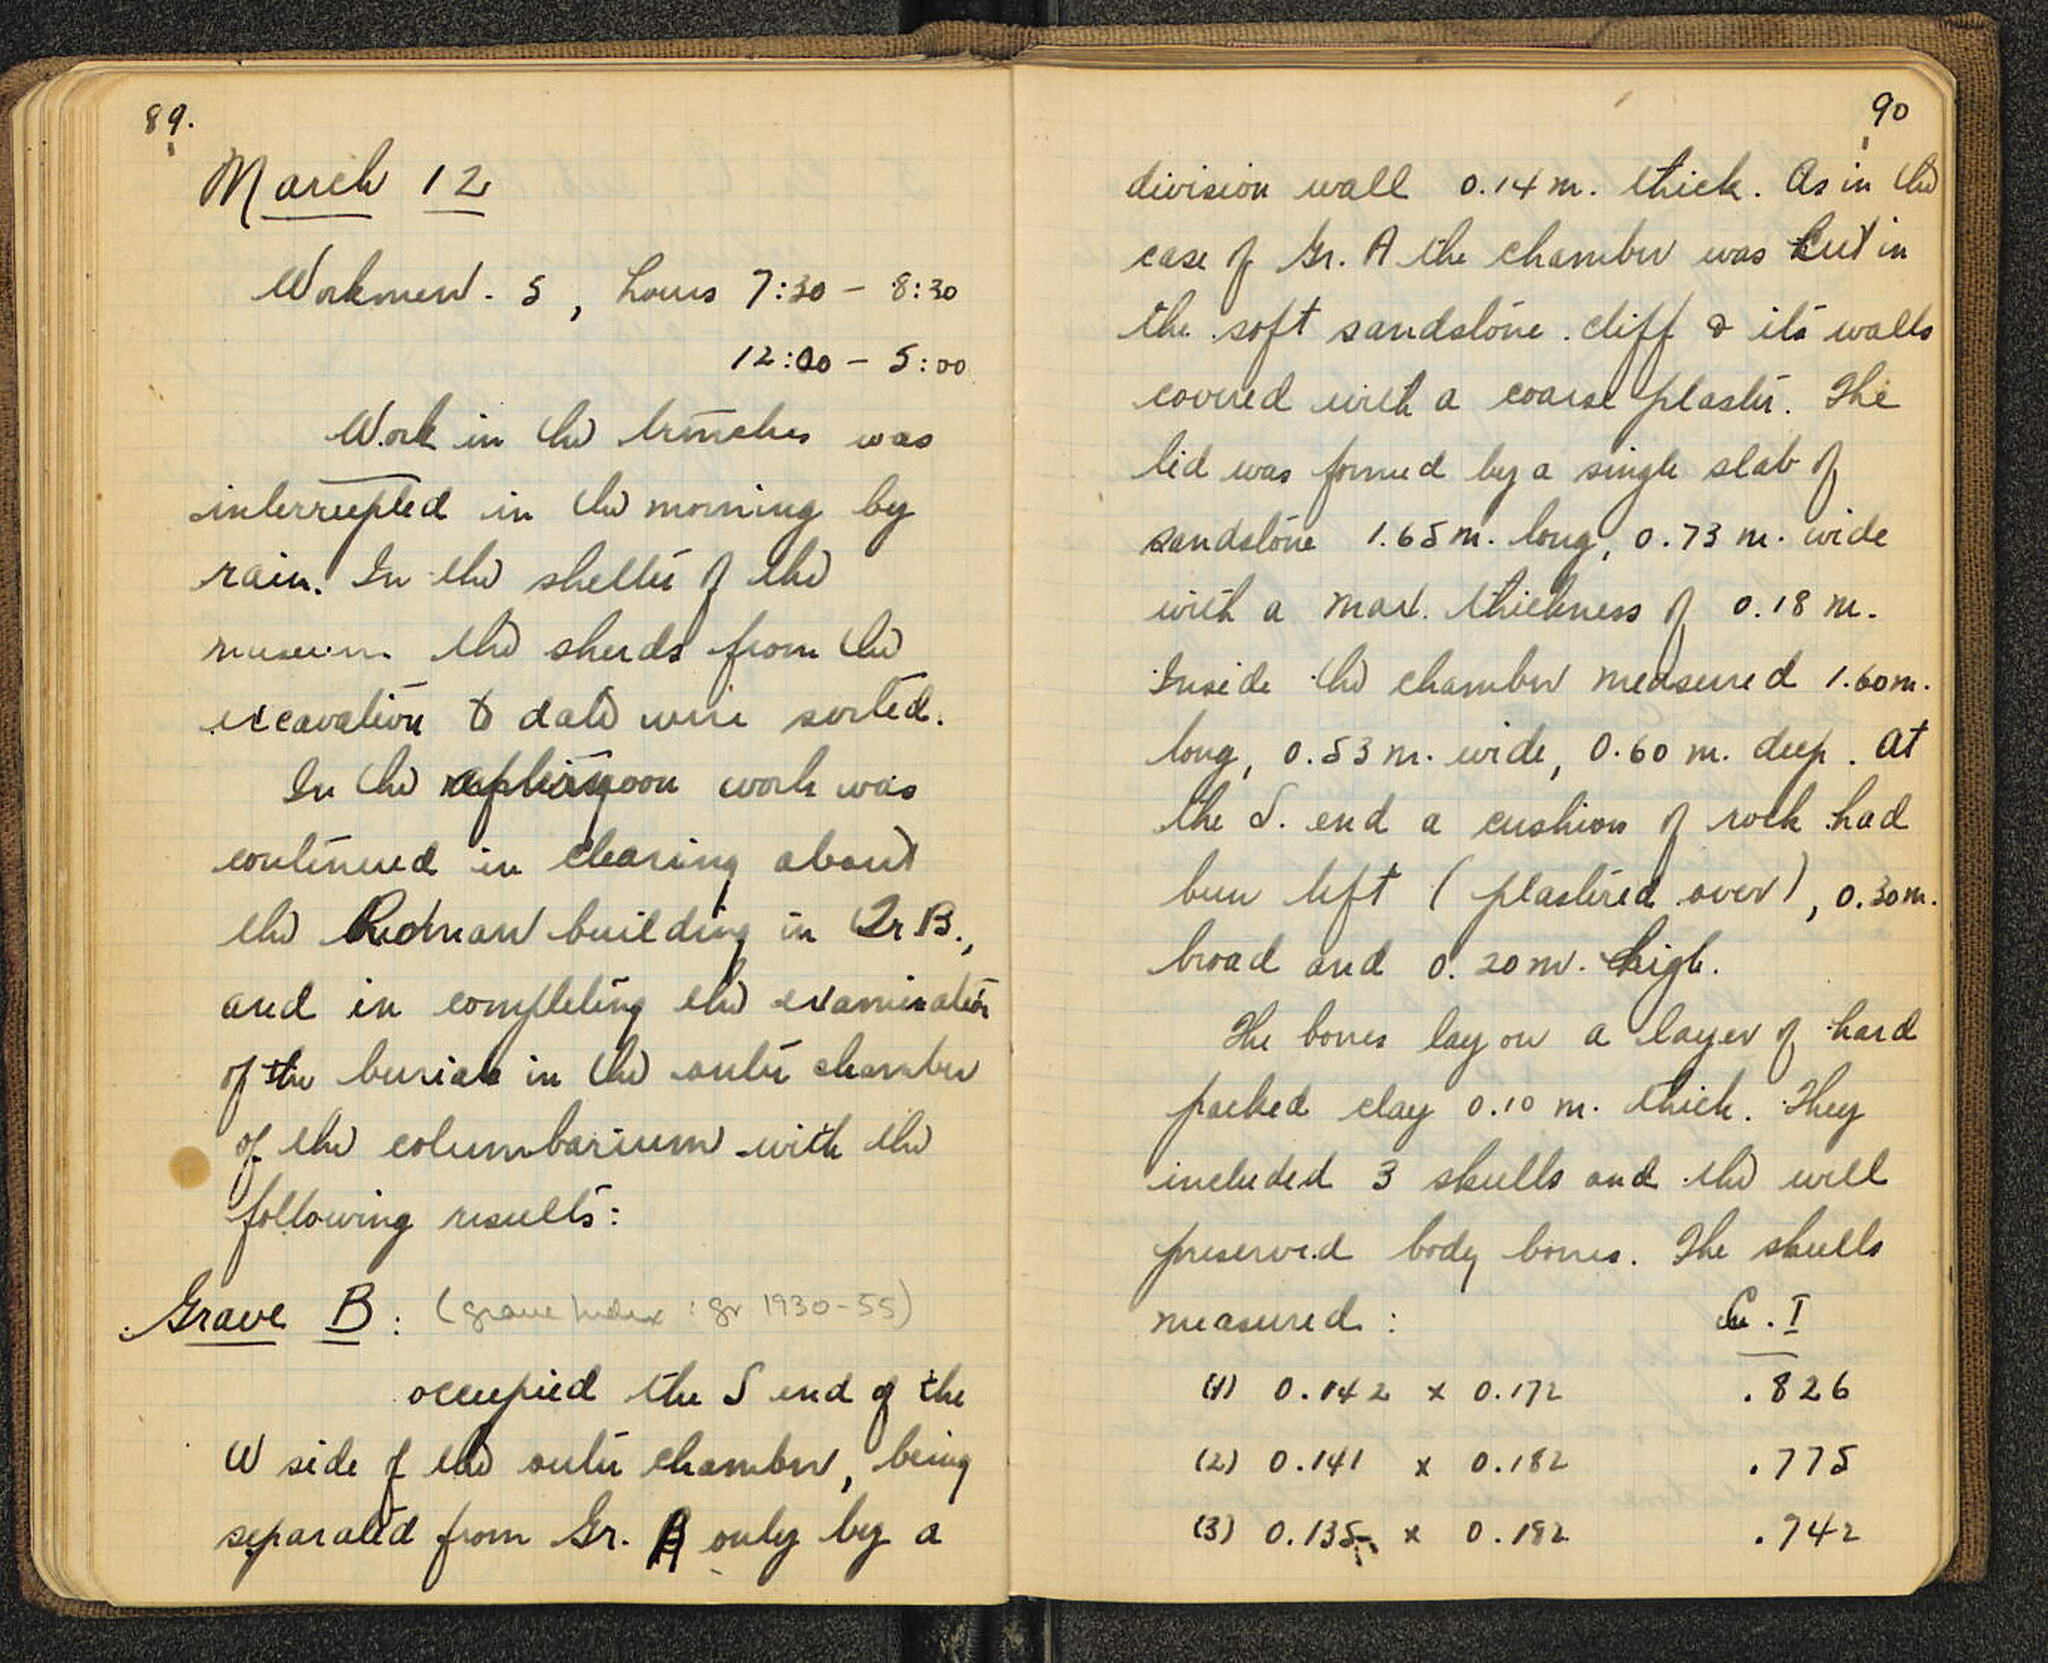 89.
March 12
Workmen. 5, hours 7:30 – 8:30
12:00 – 5:00
Work in the trenches was
interrupted in the morning by
rain. In the shelter of the
museum the sherds from the
excavation to date were sorted.
In the afternoon work was
continued in clearing about
the Roman building in Tr B.,
and in completing the examination
of the burials in the outer chamber
of the columbarium with the
following results:
Grave B: (grave index: gr 1930-55)
occupied the S end of the
W side of the outer chamber, being
separated from Gr. A only by a
90
division wall 0.14 m. thick. As in the
case of Gr. A the chamber was cut in
the soft sandstone cliff & its walls
covered with a coarse plaster. The
lid was formed by a single slab of
sandstone 1.65 m. long, 0.73 m. wide
with a max. thickness of 0.18 m.
Inside the chamber measured 1.60 m.
long, 0.53 m. wide, 0.60 m. deep. At
the S. end a cushion of rock had
been left (plastered over), 0.30 m.
broad and 0.20 m. high.
The bones lay on a layer of hard
packed clay 0.10 m. thick. They
included 3 skulls and the well
preserved body bones. The skulls
measured: C. I
(1) 0.142 x 0.172 .826
(2) 0.141 x 0.182 .775
(3) 0.135 x 0.182 .742